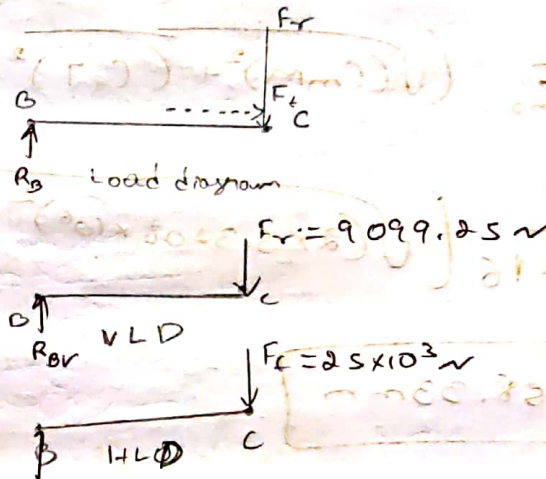 Fr
B
Ft
C
RB Load diagram
Fr = 9099.25 N
B C
RBV VLD
Ft = 25×10³ N
B HLD C